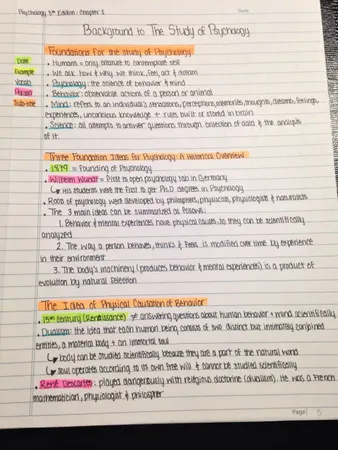 Psychology 5th Edition: Chapter 1
Date:
Background to The Study of Psychology
Foundations for the study of Psychology
Date
Example
Vocab
Person
Sub-title
• Humans = only creature to contemplate self
• We ask how & why we think, feel, act & dream
• Psychology: the science of behavior & mind
• Behavior: observable actions of a person or animal
• Mind: refers to an individual's sensations, perceptions, memories, thoughts, dreams, feelings,
experiences, unconscious knowledge + rules built or stored in brain)
• Science: all attempts to answer questions through collection of data & the analysis
of it.
Three Foundation Ideas for Psychology: A Historical Overview
• 1879 = Founding of Psychology
• Wilhelm Wundt = First to open psychology lab in Germany
↳ His students were the first to get Ph.D. degrees in Psychology
• Roots of psychology were developed by philosphers, physicists, physiologists & naturalists
• The 3 main ideas can be summarized as follows:
1. Behavior & mental experiences have physical causes, so they can be scientifically
analyzed
2. The way a person behaves, thinks & feels is modified over time by experience
in their environment
3. The body's machinery (produces behavior & mental experiences) is a product of
evolution by natural selection
The Idea of Physical Causation of Behavior
• 15th century (Renaissance) ≠ answering questions about human behavior + mind scientifically
• Dualism: the idea that each human being consists of two distinct but intimately conjoined
entities, a material body + an immortal soul
↳ body can be studied scientifically because they are a part of the natural world
↳ soul operates according to its own free will & cannot be studied scientifically
• René Descartes: played dangerously with religious doctrine (dualism). He was a French
mathematician, physiologist & philospher
Page: 5